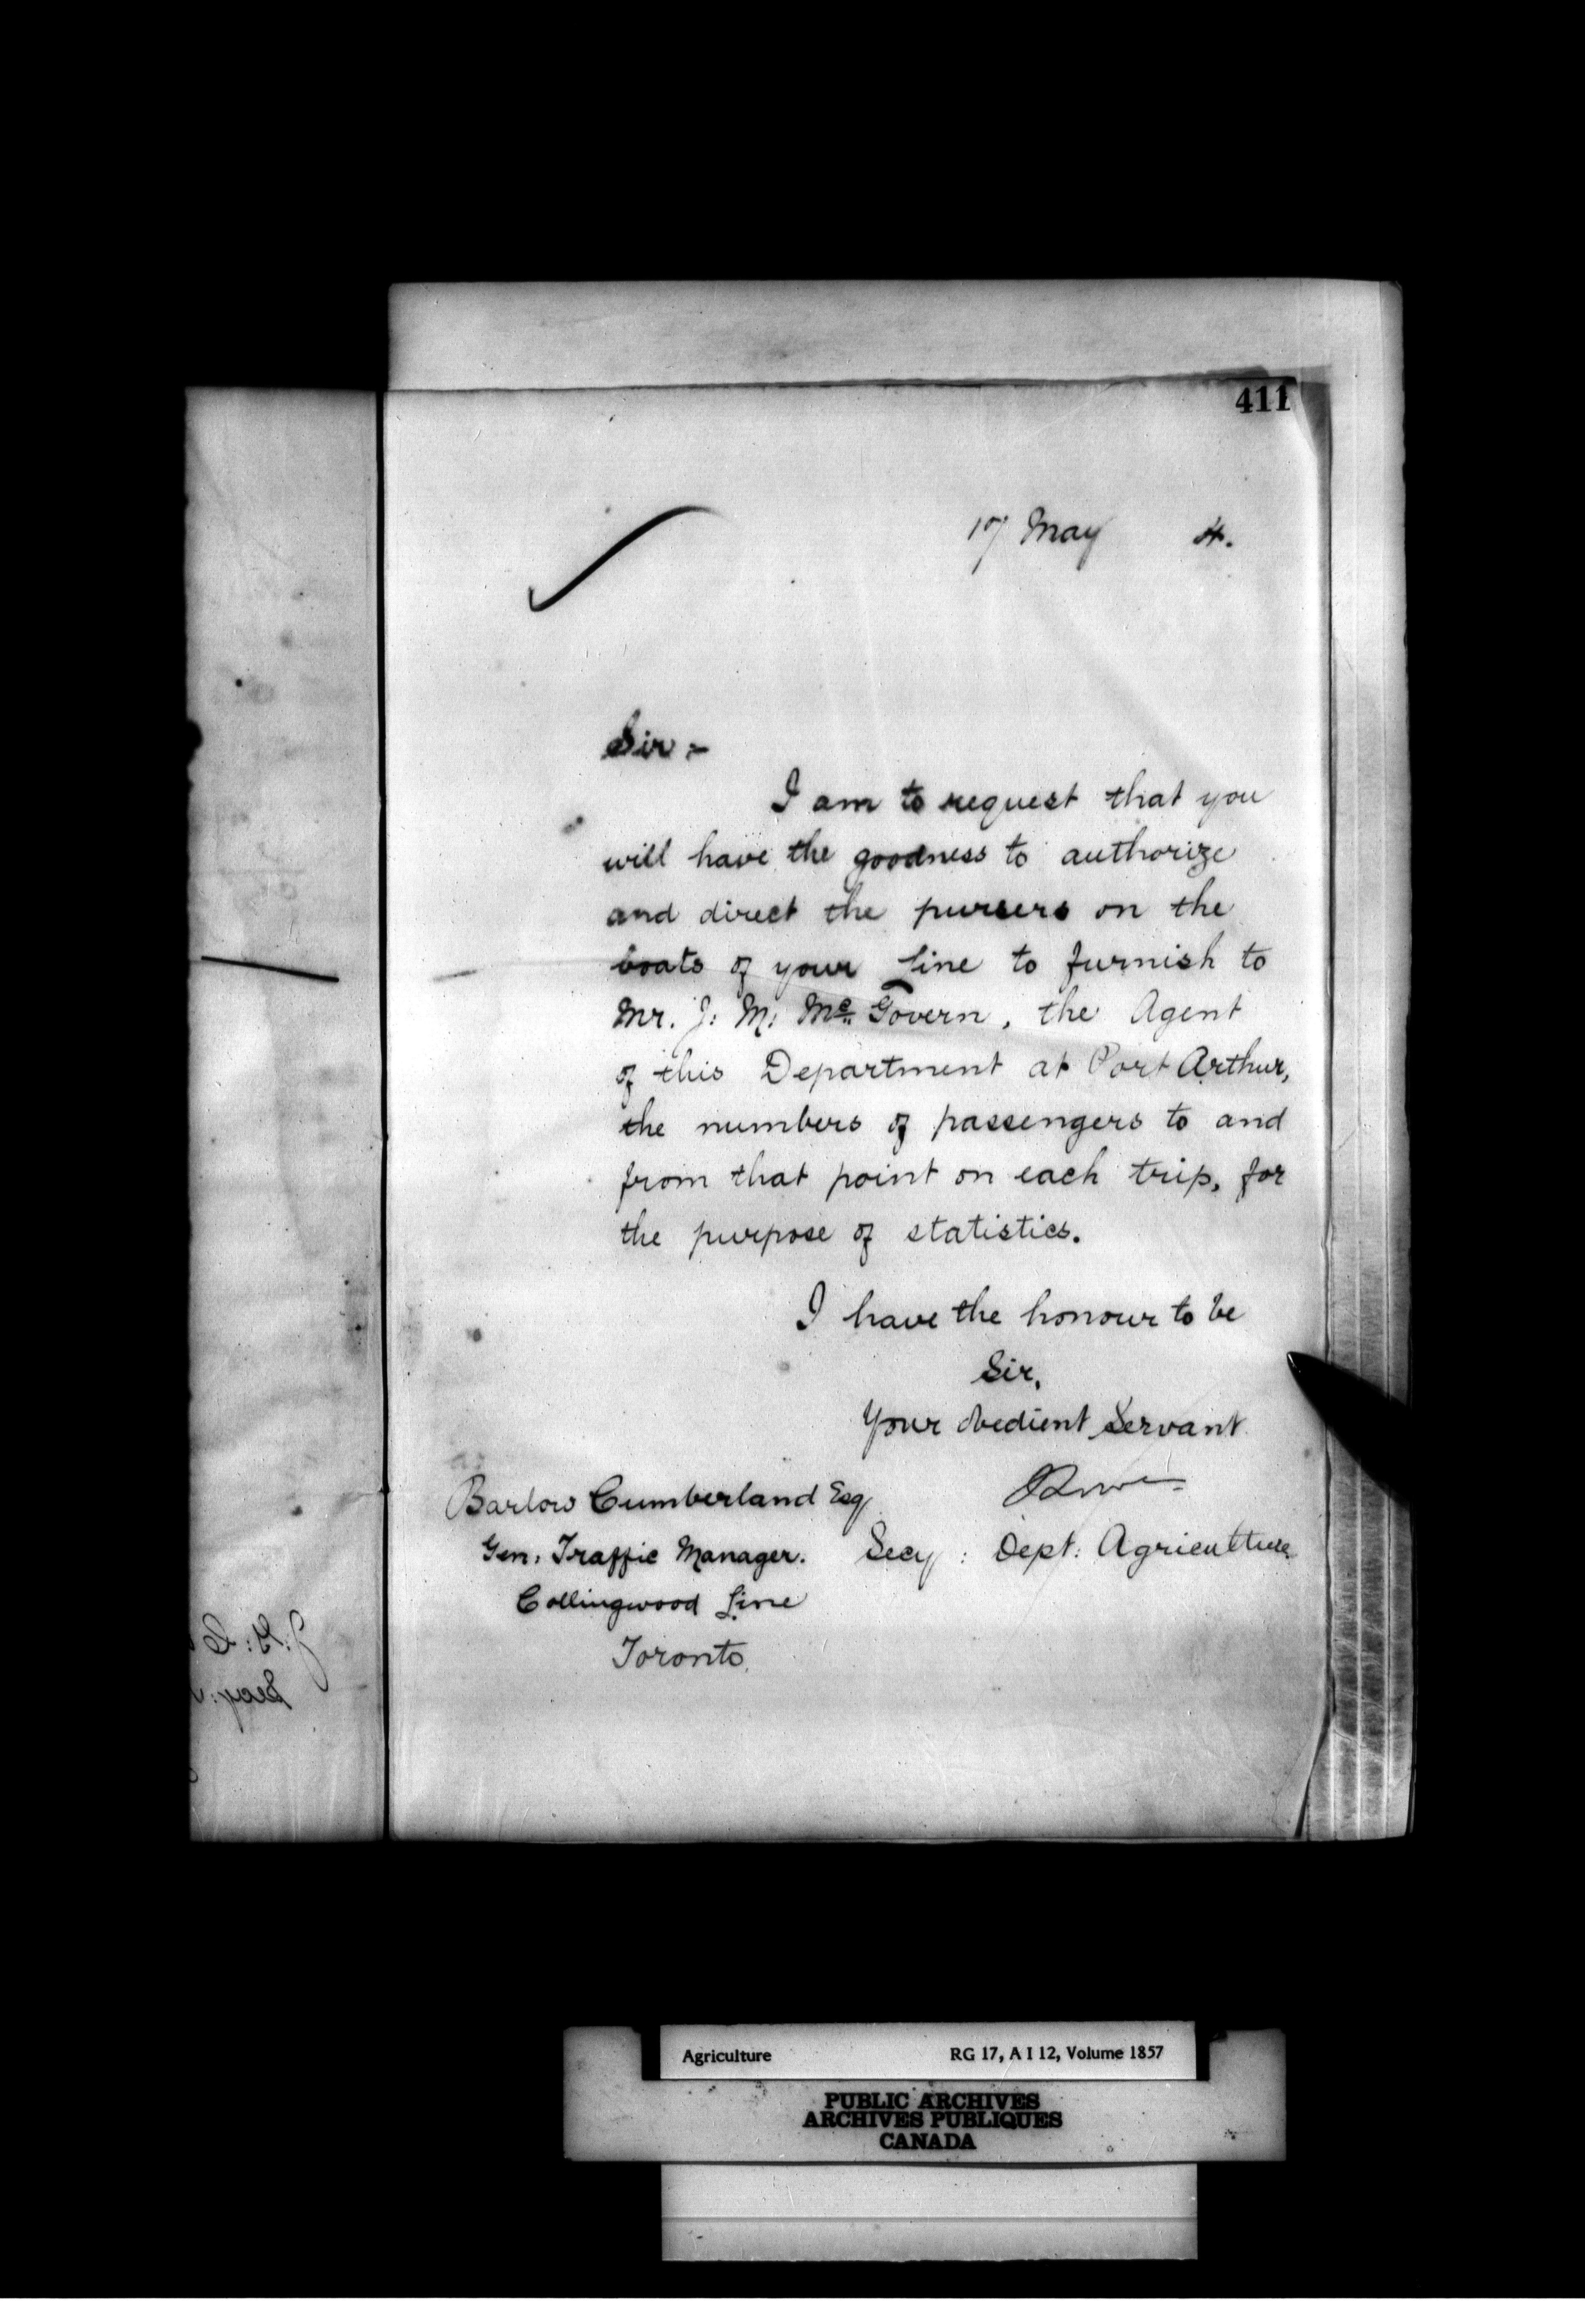 411
17 May 4.
Sir :-
I am to request that you
will have the goodness to authorize
and direct the pursers on the
boats of your Line to furnish to
Mr. J: M: Mc Govern, the Agent
of this Department at Port Arthur,
the numbers of passengers to and
from that point on each trip, for
the purpose of statistics.
I have the honour to be
Sir,
Your obedient Servant
Barlow Cumberland Esq
Gen: Traffic Manager. Secy : Dept: Agriculture
Collingwood Line
Toronto.
Agriculture RG 17, A I 12, Volume 1857
PUBLIC ARCHIVES
ARCHIVES PUBLIQUES
CANADA